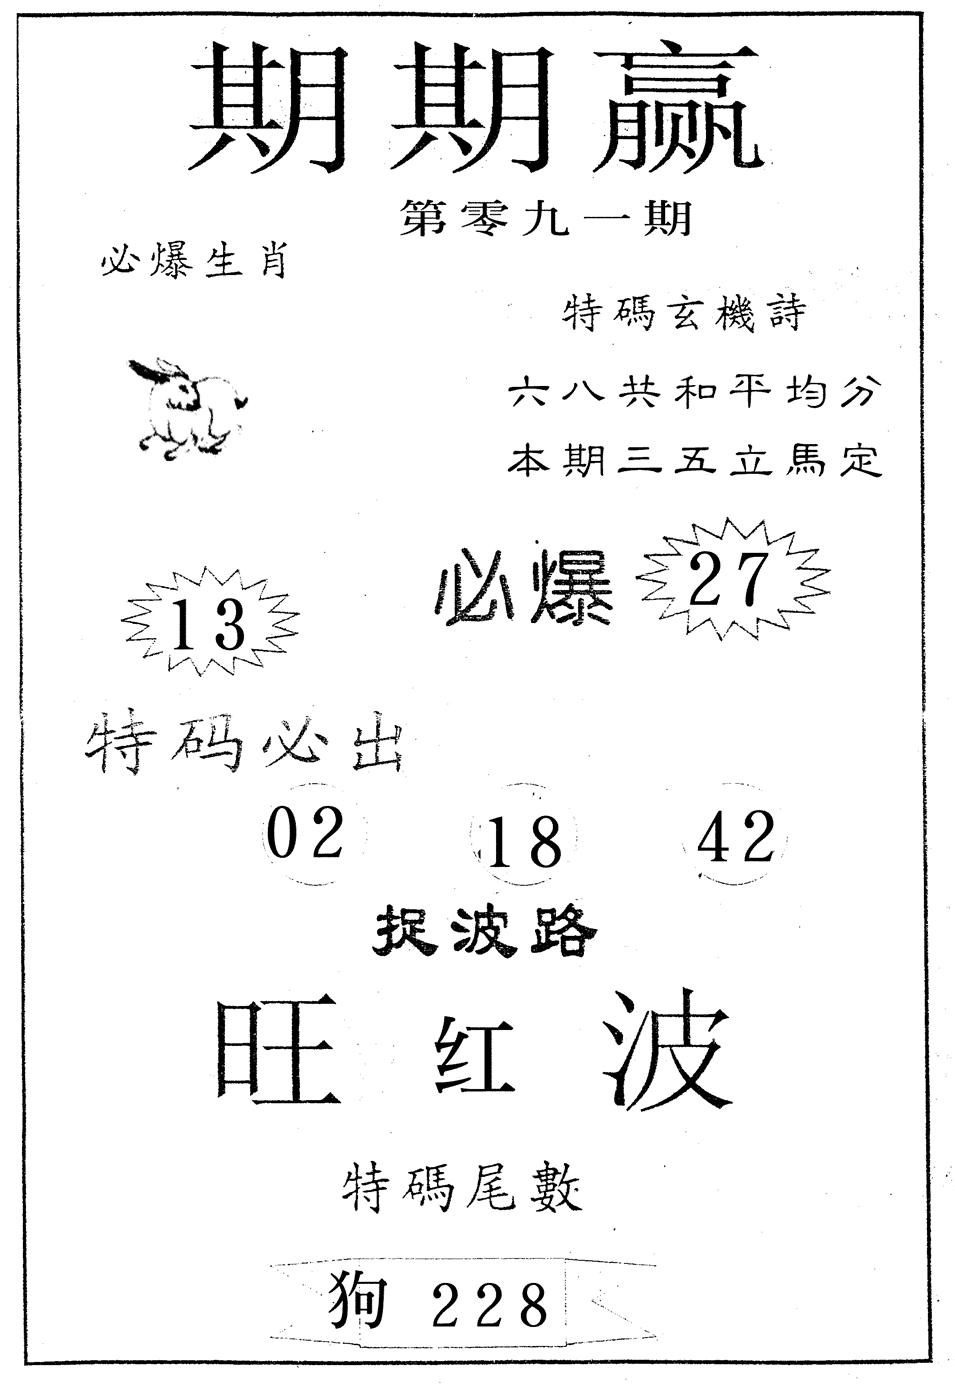 期期赢
第零九一期
必爆生肖
特碼玄機詩
六八共和平均分
本期三五立馬定
必爆 27
13
特码必出
02 18 42
捉波路
旺红波
特碼尾數
狗 228